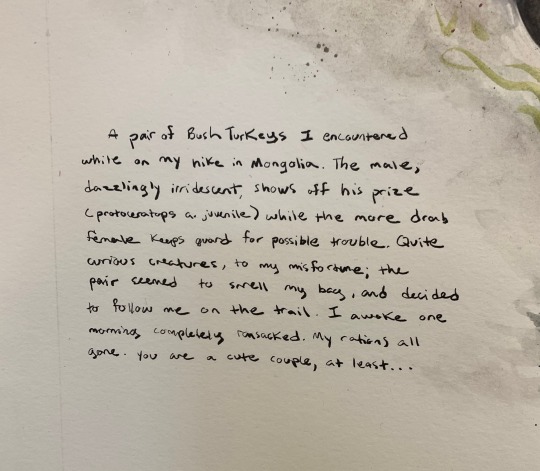 A pair of Bush Turkeys I encountered
while on my hike in Mongolia. The male,
dazzlingly irridescent, shows off his prize
(protoceratops a. juvenile) while the more drab
female keeps guard for possible trouble. Quite
curious creatures, to my misfortune; the
pair seemed to smell my bag, and decided
to follow me on the trail. I awoke one
morning completely ransacked. My rations all
gone. You are a cute couple, at least...